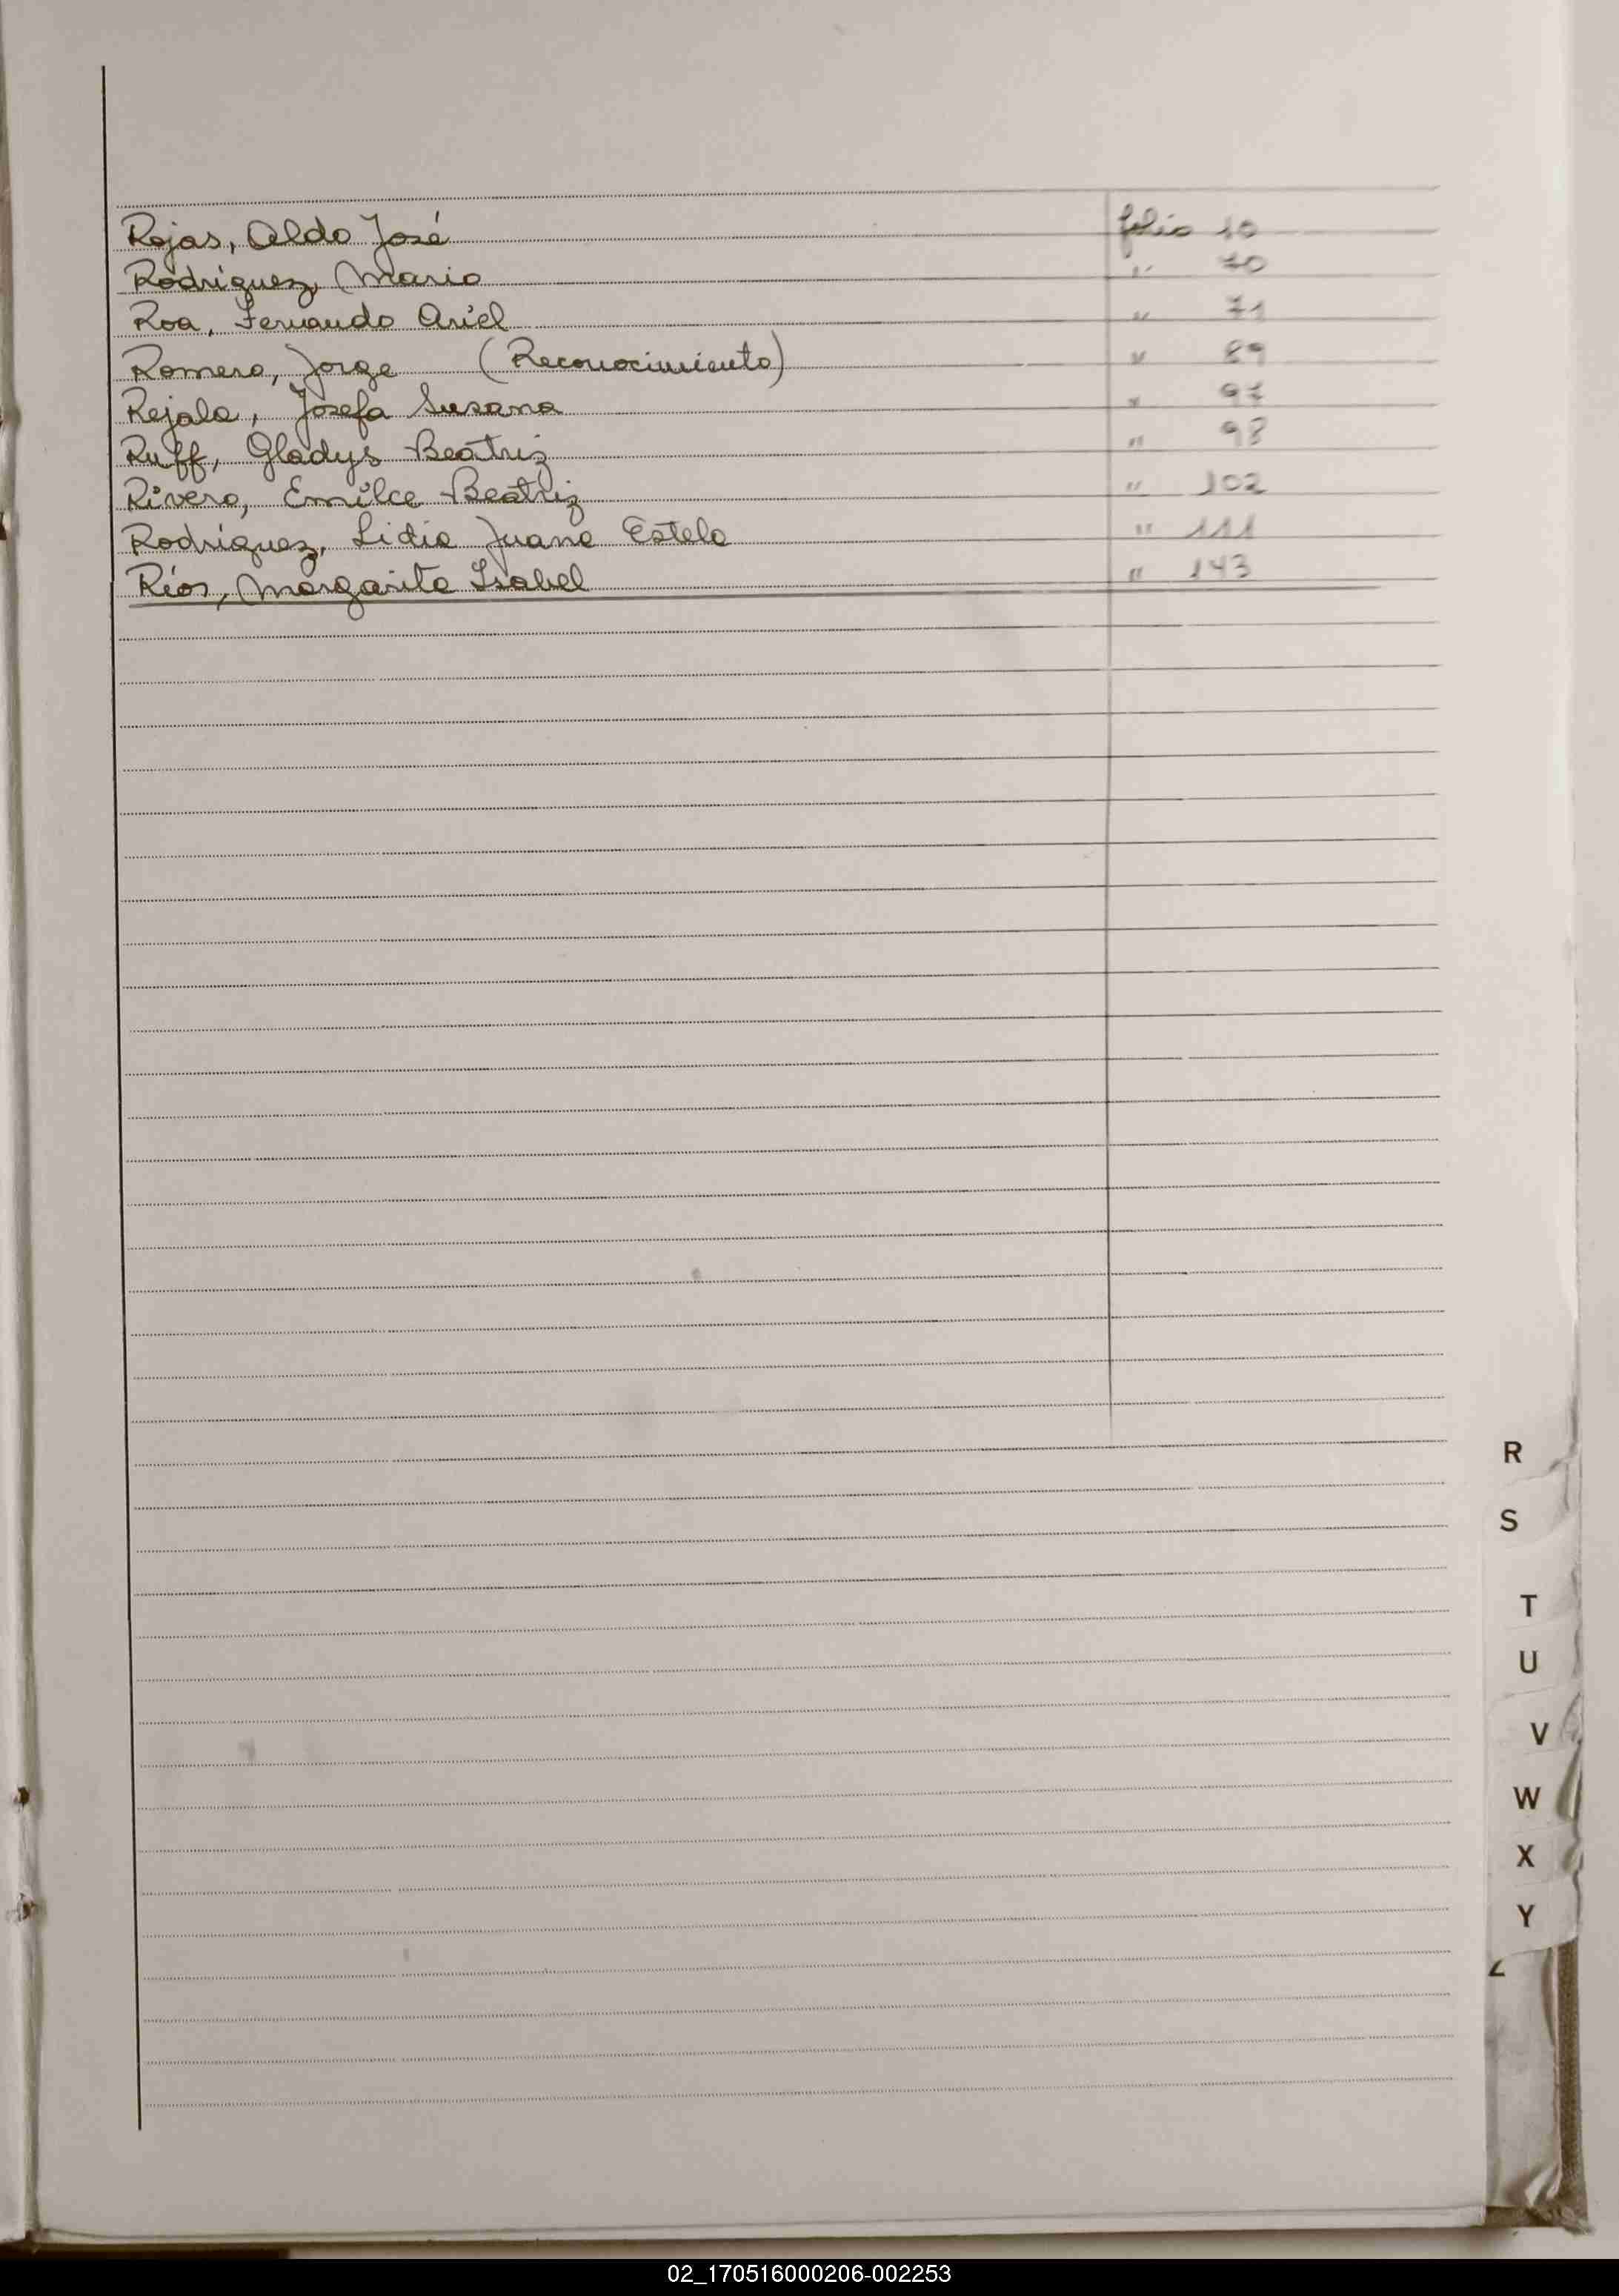 Rojas, Aldo José folio 10
Rodriguez, Mario " 70
Roa, Fernando Ariel " 71
Romero, Jorge (Reconocimiento) " 89
Rejala, Josefa Susana " 97
Ruff, Gladys Beatriz " 98
Rivero, Emilce Beatriz " 102
Rodriguez, Lidia Juana Estela " 111
Ríos, Margarita Isabel " 143
R
S
T
U
V
W
X
Y
Z
02_170516000206-002253